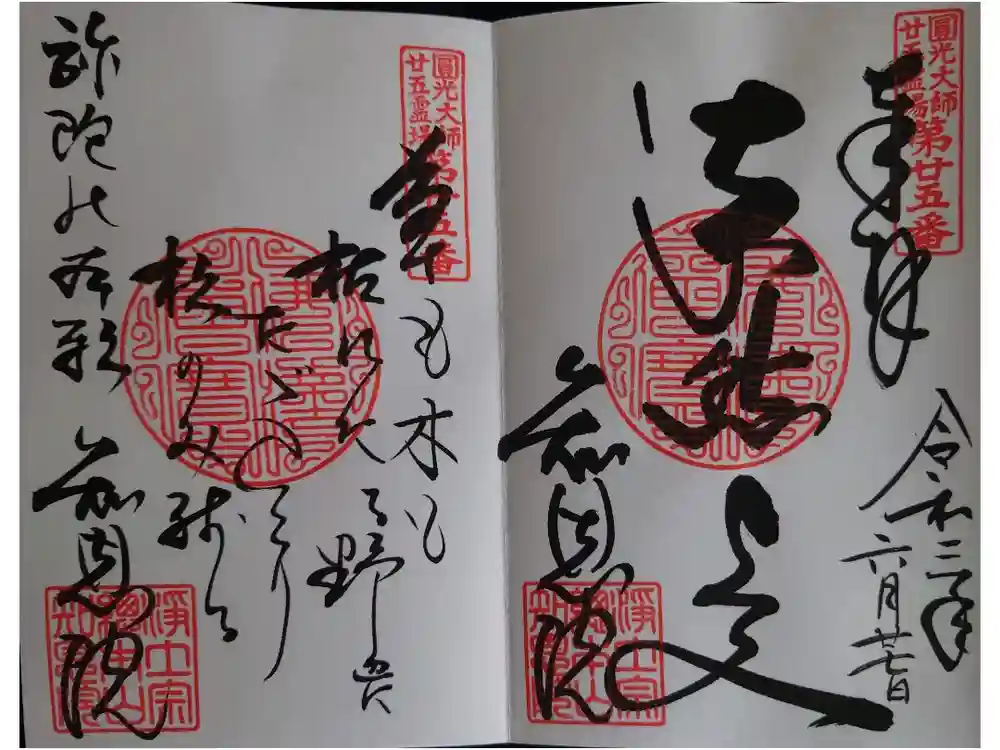 圓光大師
廿五霊場第廿五番
奉拝
令和三年
六月廿七日
法然上人
知恩院
浄土宗
總本山
知恩院
圓光大師
廿五霊場第廿五番
草も木も
枯れたる野辺に
ただひとり
松のみ残る
弥陀の本願
知恩院
浄土宗
總本山
知恩院